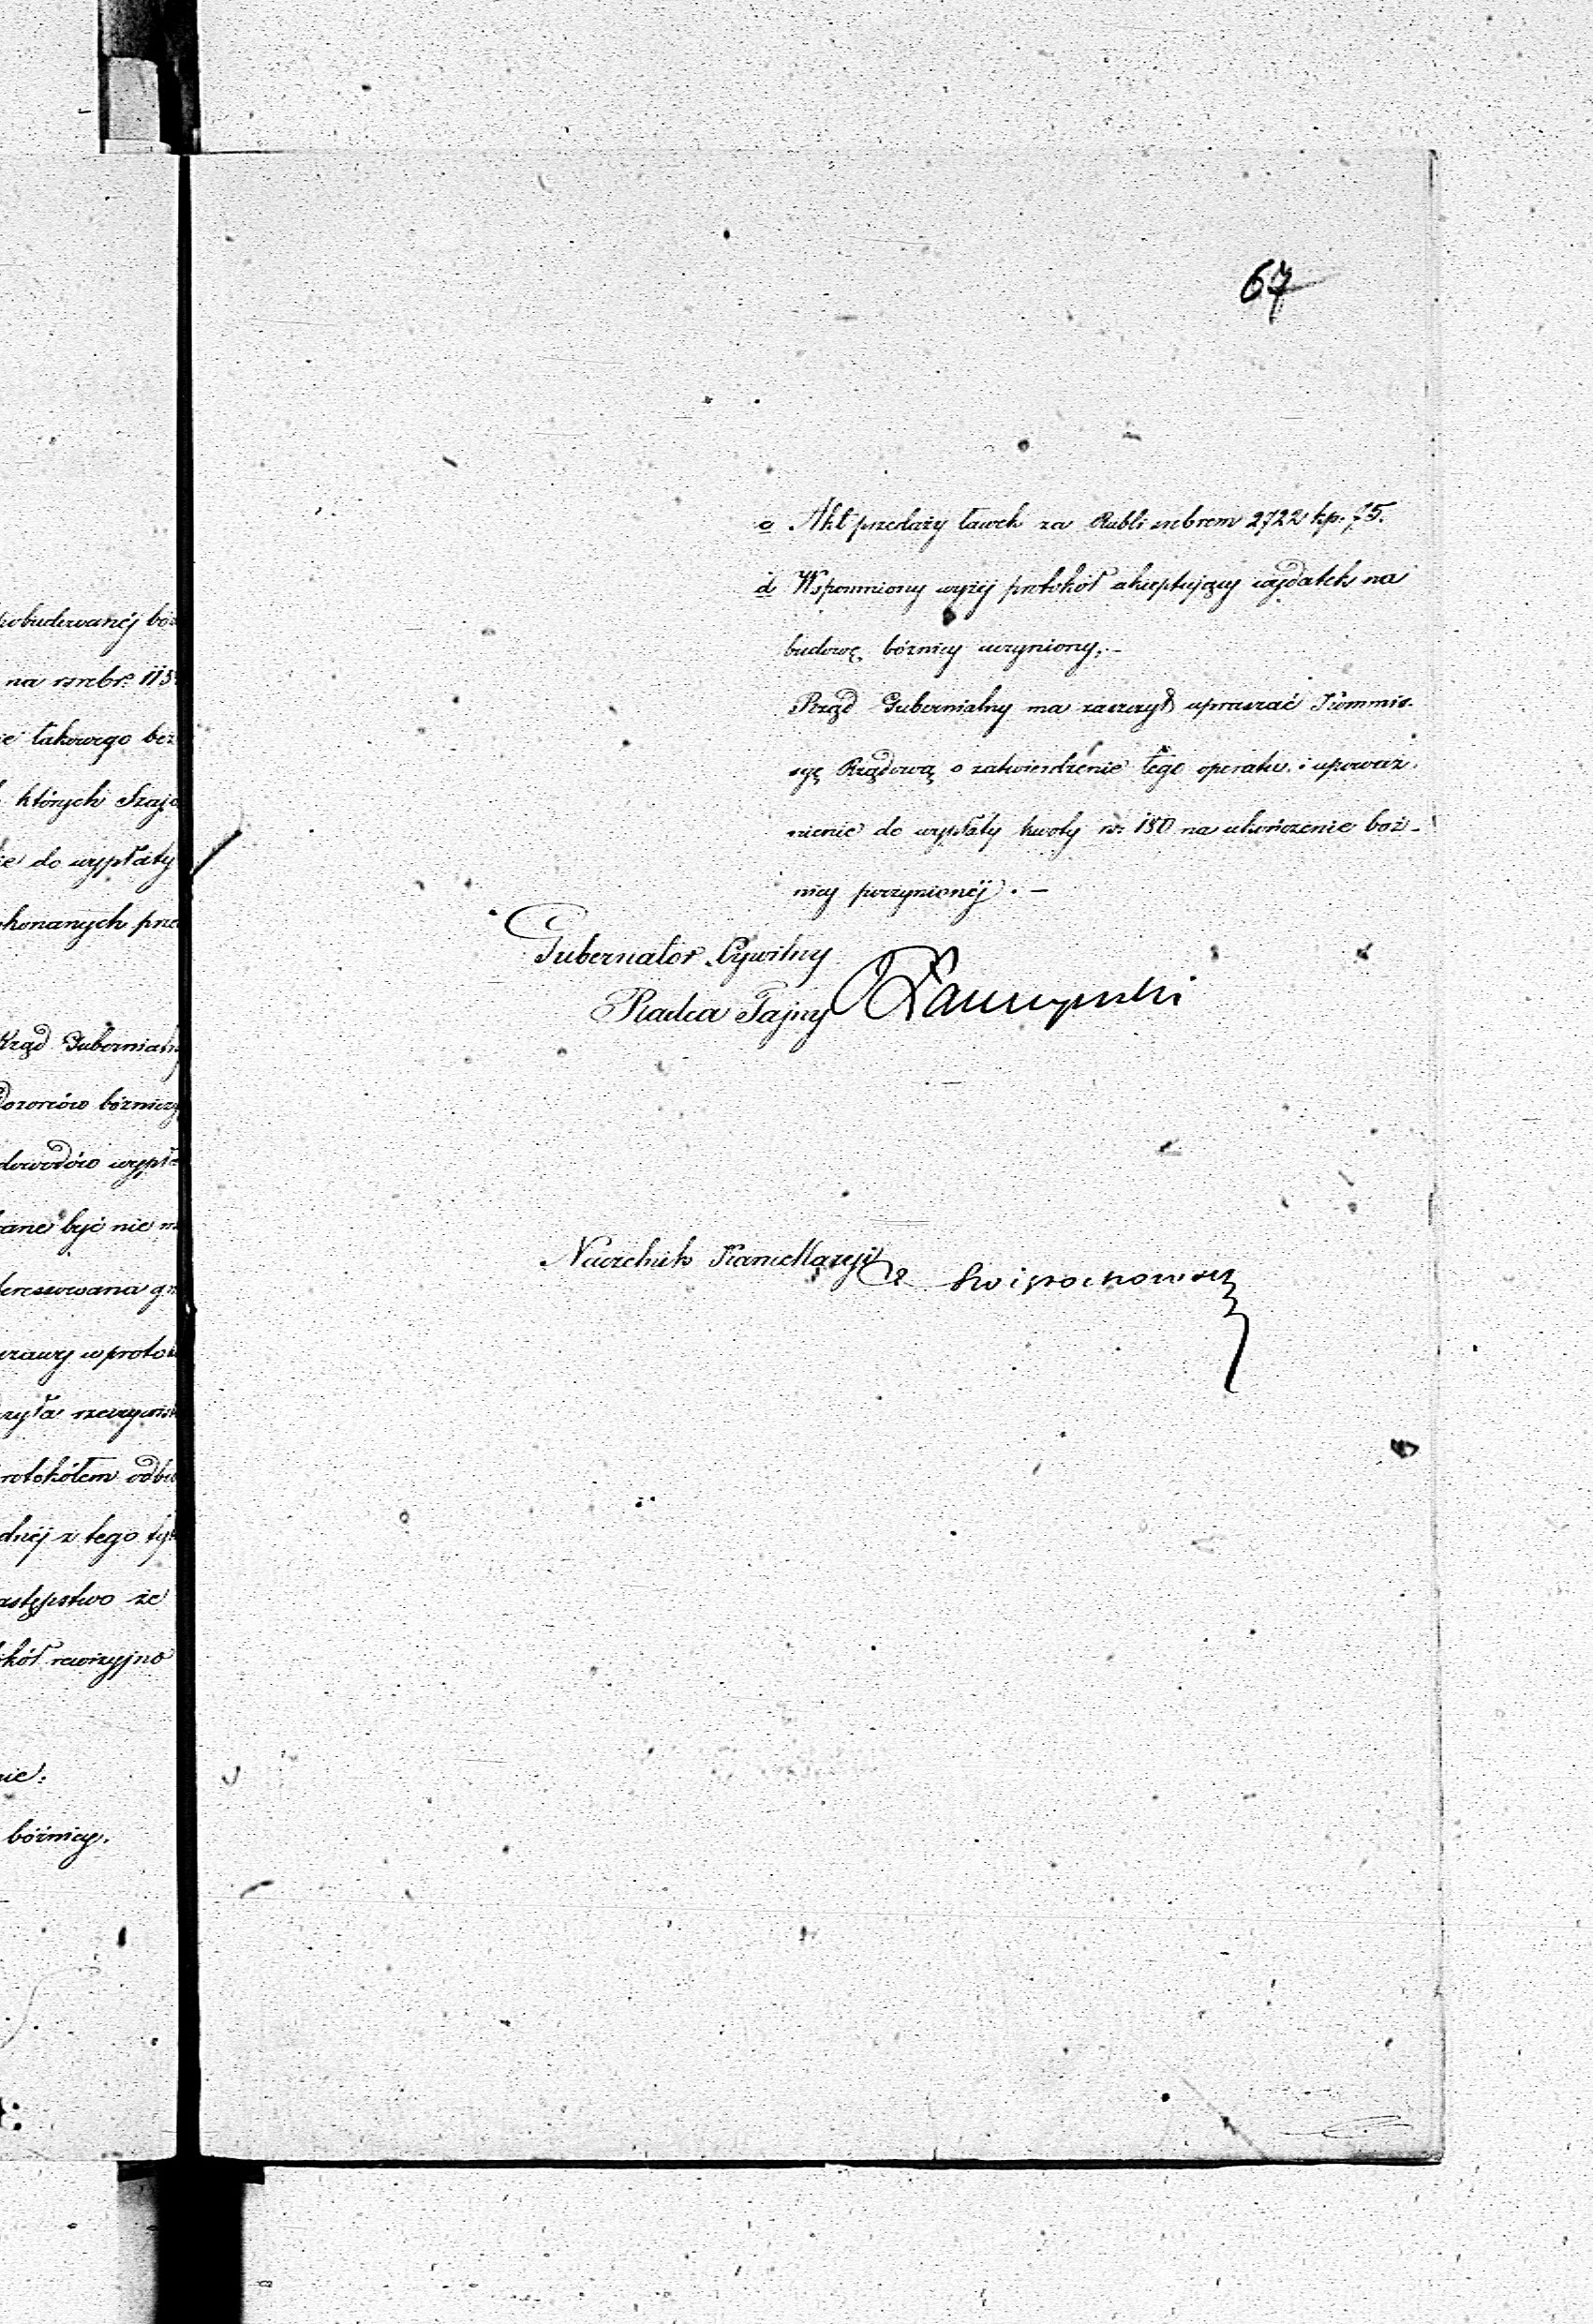 67
c Akt przedaży ławek za Rubli srebrem 2722 kp. 75.
d Wspomniony wyżej protokół akceptujący wydatek na
budowę bóżnicy uczyniony.-
Rząd Gubernialny ma zaszczyt upraszać Kommis-
syę Rządową o zatwierdzenie tego operatu i upoważ-
nienie do wypłaty kwoty rs. 150 na ukończenie boż-
nicy poczynionej. -
Gubernator Cywilny
Radca Tajny
Naczelnik Kancellaryi
obudowanéj bóż
na rsrebr. 115
e takowego bez
których Szaja
ie do wypłaty
konanych prze
Rząd Gubernialny
Dozorców bóżnicz
dowodów wypła
ane być nie m
teressowana g
prawy w proto
rotokółem odbi
dnéj z tego ty
astępstwo że
kół rewizyjno
nie:
bóżnicy.